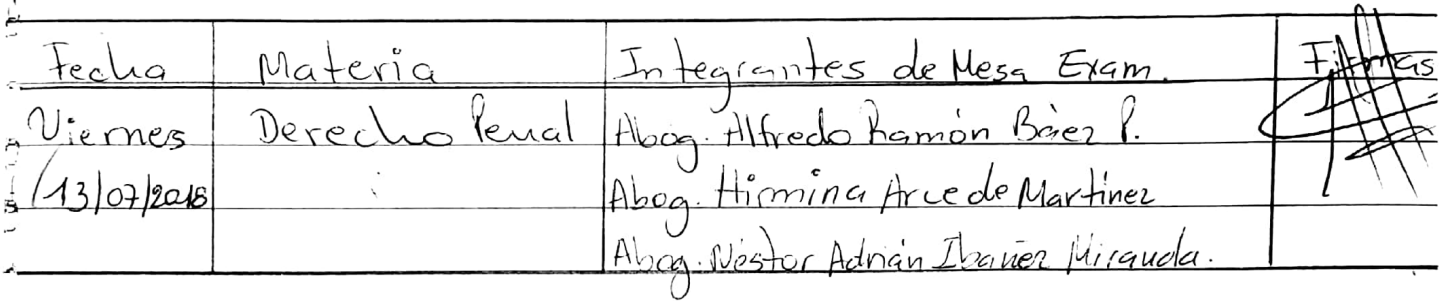 Fecha Materia Integrantes de Mesa Exam. Firmas
Viernes Derecho Penal Abog. Alfredo Ramón Báez P.
13/07/2018 Abog. Hirmina Arce de Martinez
Abog. Néstor Adrián Ibañez Miranda.